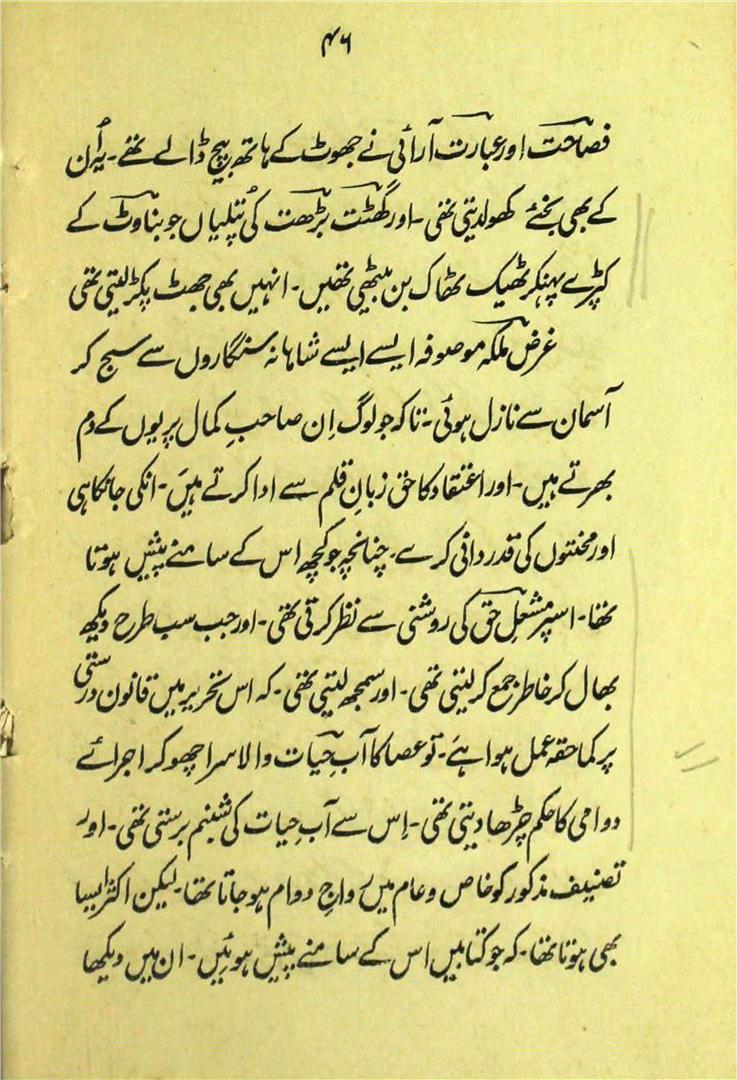 ۴۶
فصاحت اور عبارت آرائی نے جھوٹ کے ہاتھ بیچ ڈالے تھے۔ یہ اُن
کے بھی بخئے کھولدیتی تھی۔ اور گھٹت بڑھت کی پُتلیاں جو بناوٹ کے
کپڑے پہنکر ٹھیک ٹھاک بن بیٹھی تھیں۔ انہیں بھی جھٹ پکڑ لیتی تھی
غرض ملکہ موصوفہ ایسے ایسے شاہانہ سنگاروں سے سج کر
آسمان سے نازل ہوئی۔ تاکہ جو لوگ اِن صاحبِ کمال پریوں کے دم
بھرتے ہیں۔ اور اعتقاد کا حق زبانِ قلم سے ادا کرتے ہیں۔ انکی جانکاہی
اور محنتوں کی قدردانی کرے۔ چنانچہ جو کچھ اس کے سامنے پیش ہوتا
تھا۔ اسپر مشعلِ حق کی روشنی سے نظر کرتی تھی۔ اور جب سب طرح دیکھ
بھال کر خاطر جمع کر لیتی تھی۔ اور سمجھ لیتی تھی۔ کہ اس تحریر میں قانون درستی
پر کماحقہ عمل ہوا ہے۔ تو عصا کا آبِ حیات والا سرا چھوکر اجرائے
دوامی کا حکم چڑھا دیتی تھی۔ اِس سے آبِ حیات کی شبنم برستی تھی۔ اور
تصنیف مذکور کو خاص و عام میں رواجِ دوام ہو جاتا تھا۔ لیکن اکثر ایسا
بھی ہوتا تھا۔ کہ جو کتابیں اس کے سامنے پیش ہوئیں۔ ان میں دیکھا